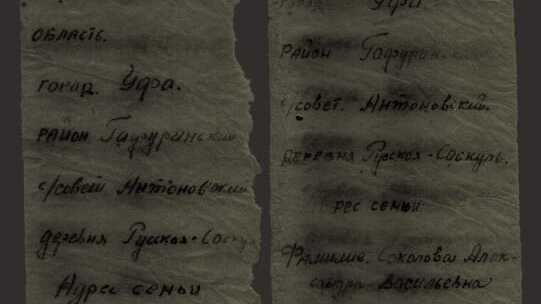 ОБЛАСТЬ.
ГОРАД. Уфа.
РАЙОН Гафуринский
с/совет Антоновский
деревня Русская-Саску
Адрес семьи
Уфа
РАЙОН Гафурин
с/совет. Антоновский.
деревня Русская-Саскуль.
рес семьи
Фамилие. Соколова Алек-
сандра Васильевна